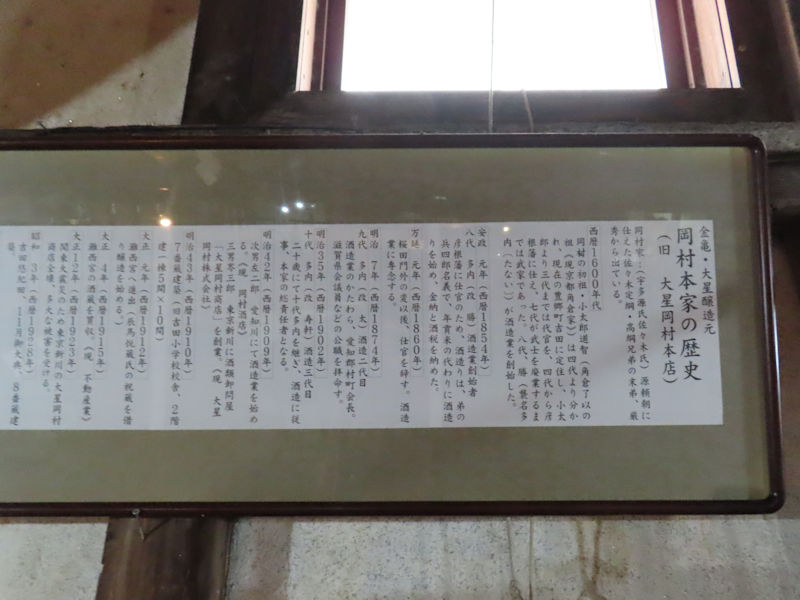 金亀・大星醸造元
岡村本家の歴史
(旧 大星岡村本店)
岡村家…(宇多源氏佐々木氏) 源頼朝に
仕えた佐々木定綱・高綱兄弟の末弟、厳
秀から出ている。
西暦1600年代
岡村の初祖・小太郎道智(角倉了以の
祖(現京都角倉家))は四代より分か
れ、現在の豊郷町吉田に定住し、小太
郎より三代までは代官を、四代から彦
根藩に仕え、七代が武士を廃業するま
では武家であった。八代、勝(襲名多
内(たない))が酒造業を創始した。
安政 元年(西暦1854年)
八代 多内(改 勝)酒造業創始者
彦根藩に仕官のため、酒造りは、弟の
兵四郎名義で、年貢米の代わりに酒造
りを始め、金納と酒税を納めた。
万延 元年(西暦1860年)
桜田門外の変以後、仕官を辞す。酒造
業に専念する。
明治 7年(西暦1874年)
九代 多内(改 太)酒造二代目
酒造業のかたわら、愛知郡村町会長。
滋賀県会議員などの公職を拝命す。
明治35年(西暦1902年)
十代 多内(改 寿軒)酒造三代目
二十歳にて十代多内を継ぎ、酒造に従
事、本家の総責任者となる。
明治42年(西暦1909年)
次男左二郎 愛知川にて酒造業を始め
る。(現 岡村酒店)
三男寄三郎 東京新川に酒類卸問屋
「大星岡村商店」を創業。(現 大星
岡村株式会社)
明治43年(西暦1910年)
7番蔵建築(旧吉田小学校校舎、2階
建一棟5間×10間)
大正 元年(西暦1912年)
灘西宮へ進出(辰馬悦蔵氏の悦蔵を借
り醸造を始める。)
大正 4年(西暦1915年)
灘西宮の酒蔵を買収。(現 不動産業)
大正12年(西暦1923年)
関東大震災のため東京新川の大星岡村
商店全壊、多大な被害を受ける。
昭和 3年(西暦1928年)
吉田悠紀田、11月御大典、8番蔵建
築。